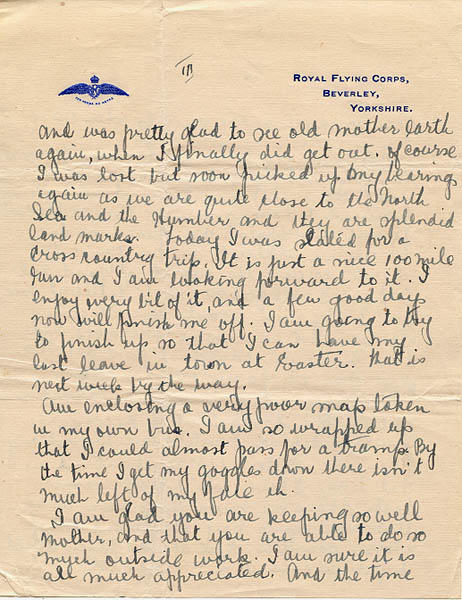 III
Royal Flying Corps,
Beverley,
Yorkshire.
and was pretty glad to see old mother earth
again, when I finally did get out. Of course
I was lost but soon picked up my bearings
again as we are quite close to the North
Sea and the Humber and they are splendid
land marks. Today I was slated for a
cross country trip. It is just a nice 100 mile
run and I am looking forward to it. I
enjoy every bit of it, and a few good days
now will finish me off. I am going to try
to finish up so that I can have my
last leave in town at Easter. that is
next week by the way.
Am enclosing a very poor snap taken
in my own bus. I am so wrapped up
that I could almost pass for a tramp. By
the time I get my goggles down there isn't
much left of my face eh.
I am glad you are keeping so well
mother, and that you are able to do so
much outside work. I am sure it is
all much appreciated. And the time